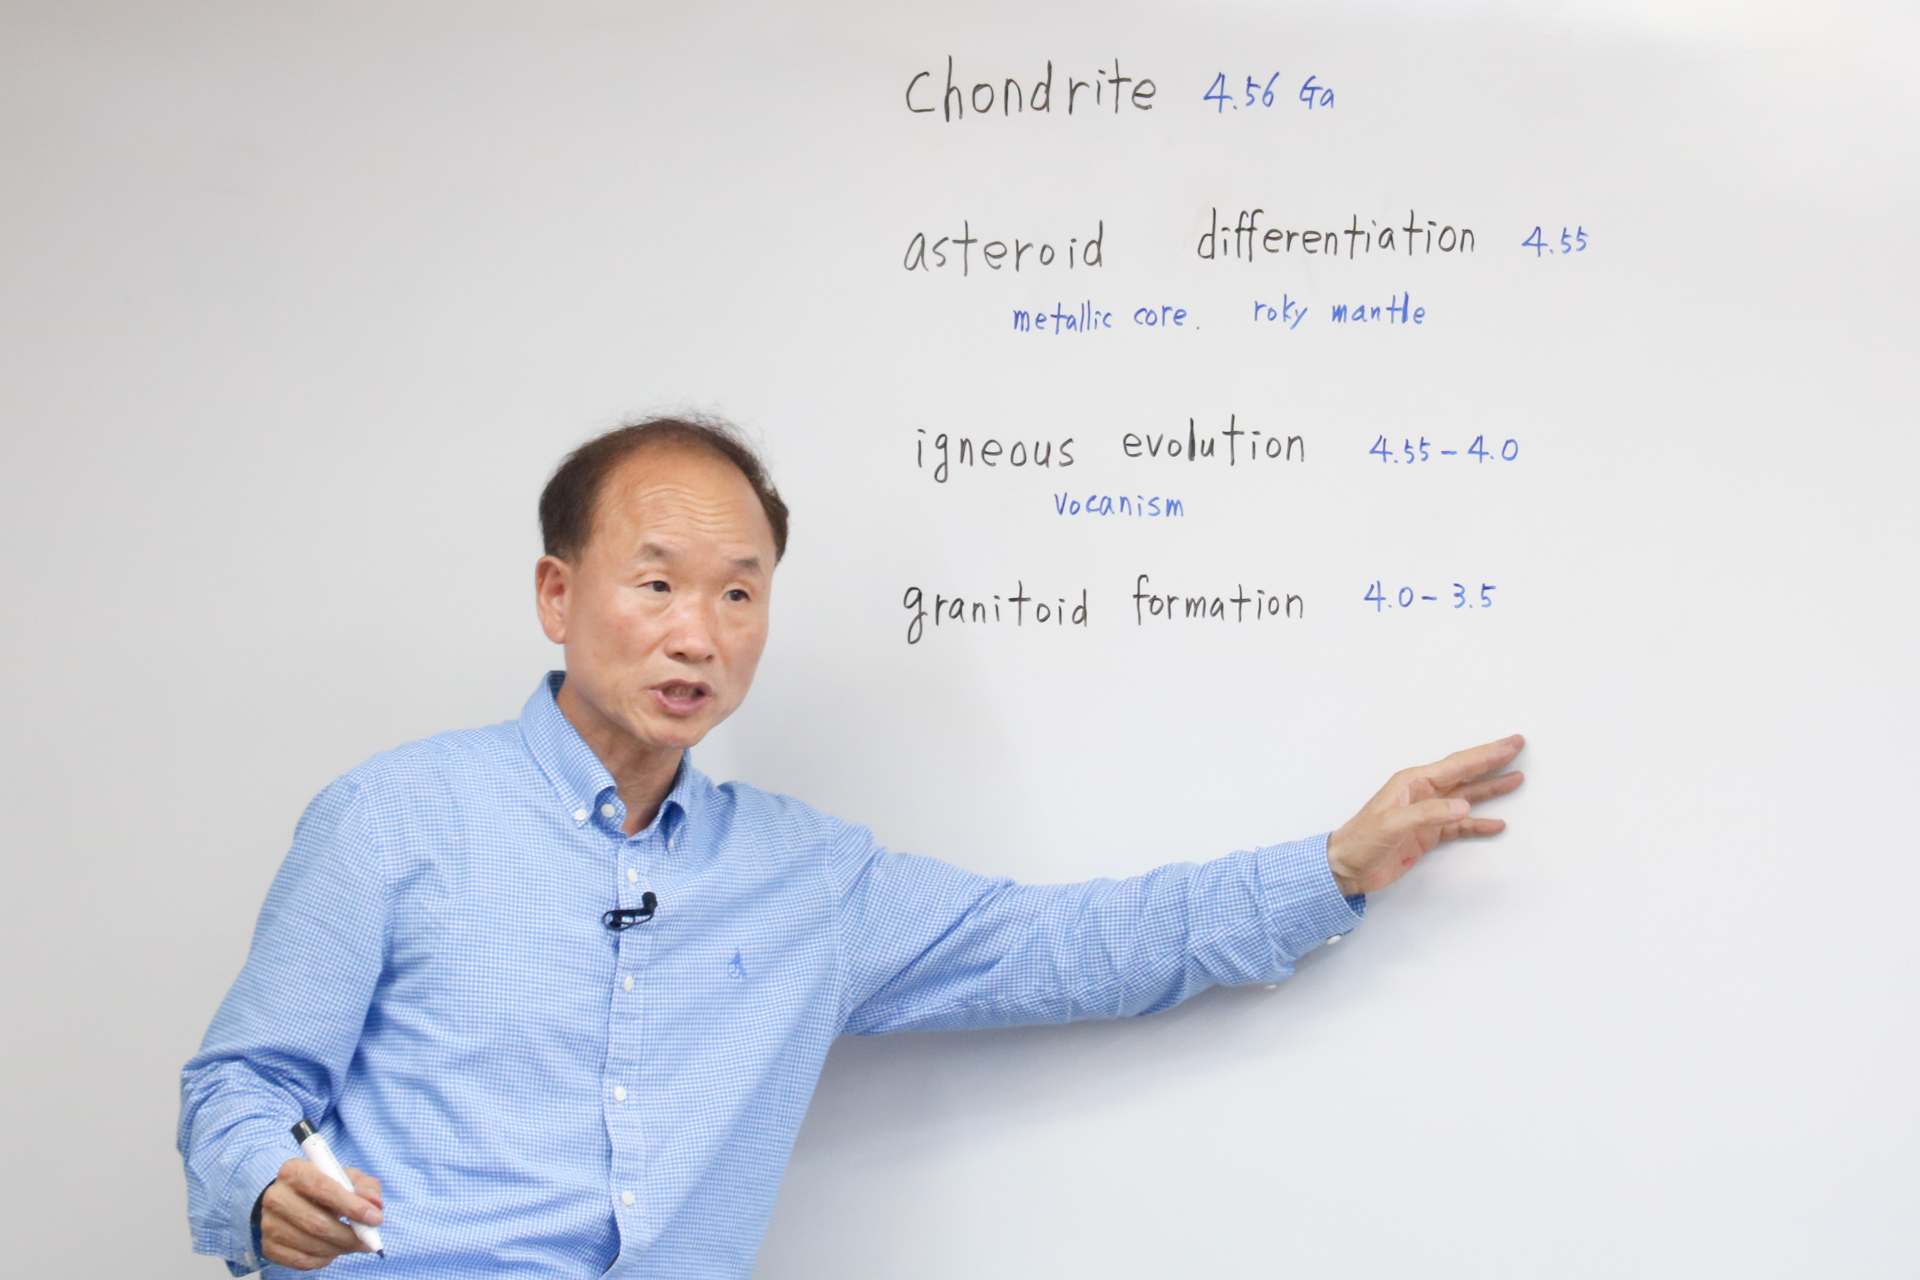 Chondrite 4.56 Ga
asteroid differentiation 4.55
metallic core. roky mantle
igneous evolution 4.55-4.0
Vocanism
granitoid formation 4.0-3.5